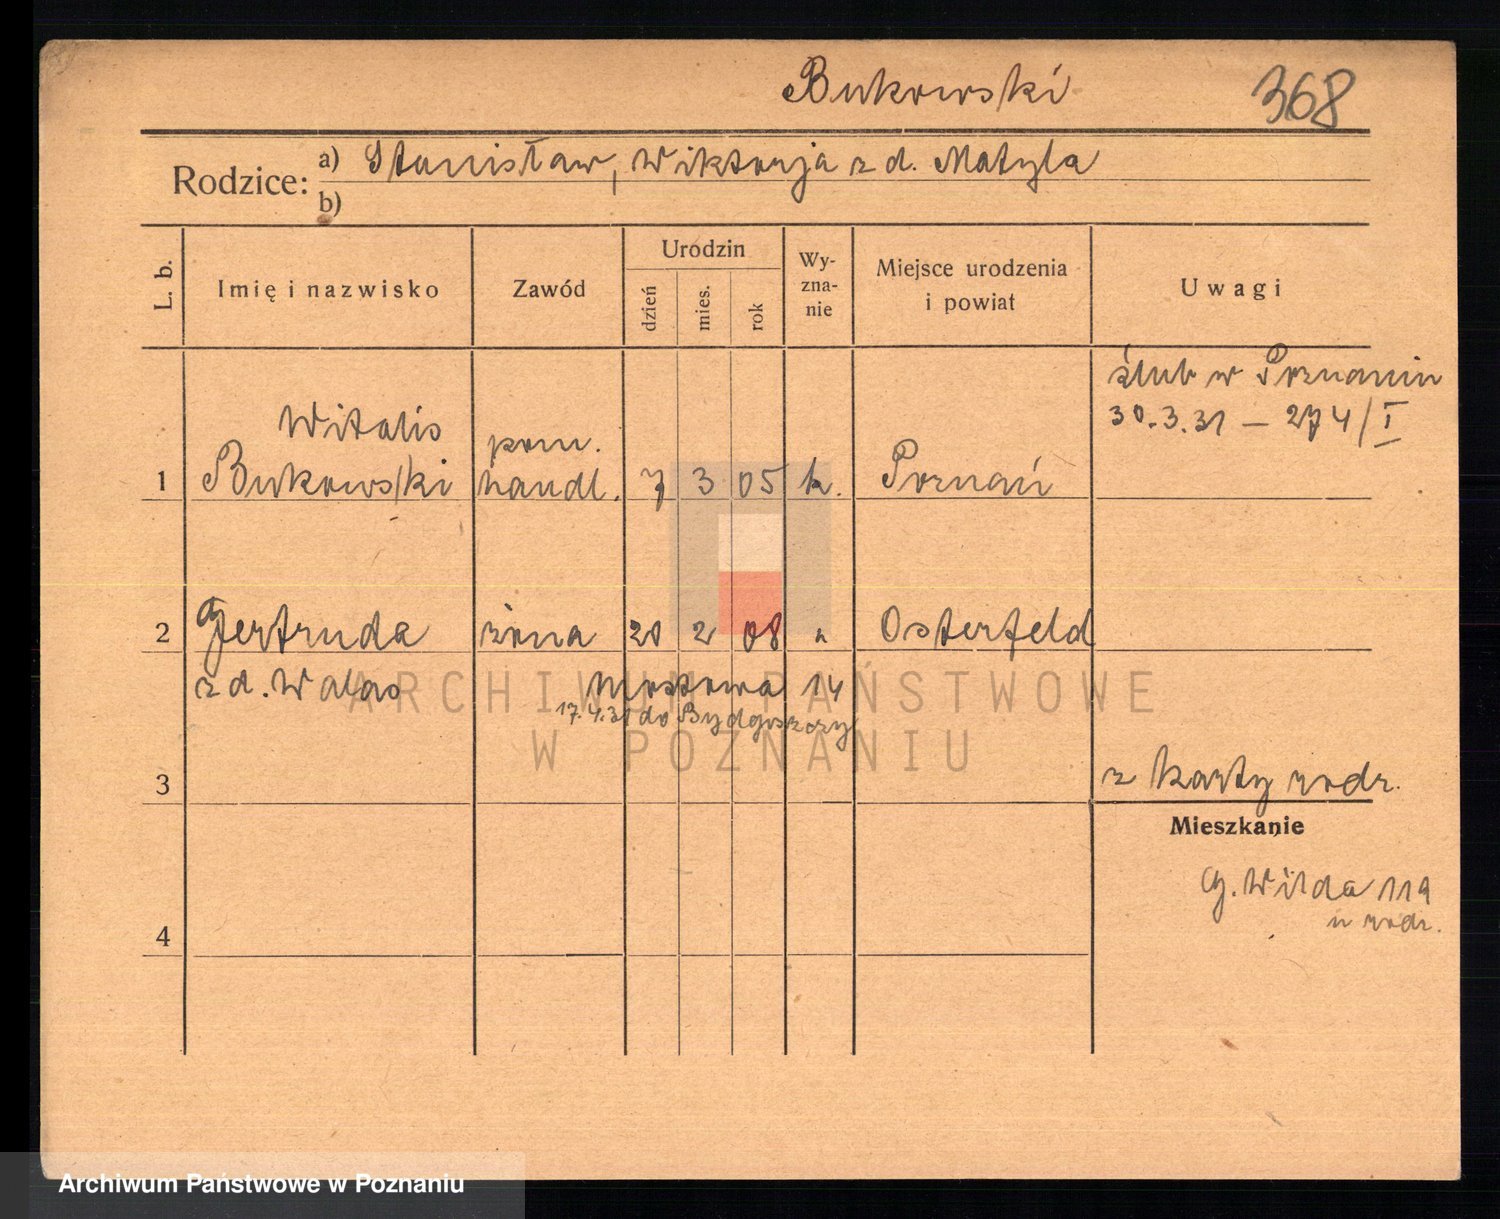 Bukowski 368
Rodzice: a) Stanisław, Wiktorja z d. Matyla
b)
L. b. Imię i nazwisko Zawód Urodzin dzień mies. rok Wy-zna-nie Miejsce urodzenia i powiat Uwagi
ślub w Poznaniu
30.3.31 – 274/I
Witalis pom.
1 Bukowski handl. 7 3 05 k. Poznań
2 Gertruda żona 20 2 08 " Osterfeld
z d. Walas Mostowa 14
17.4.31 do Bydgoszczy
ARCHIWUM PAŃSTWOWE
W POZNANIU
3 z karty rodz.
Mieszkanie
G. Wilda 119
u rodz.
4
Archiwum Państwowe w Poznaniu